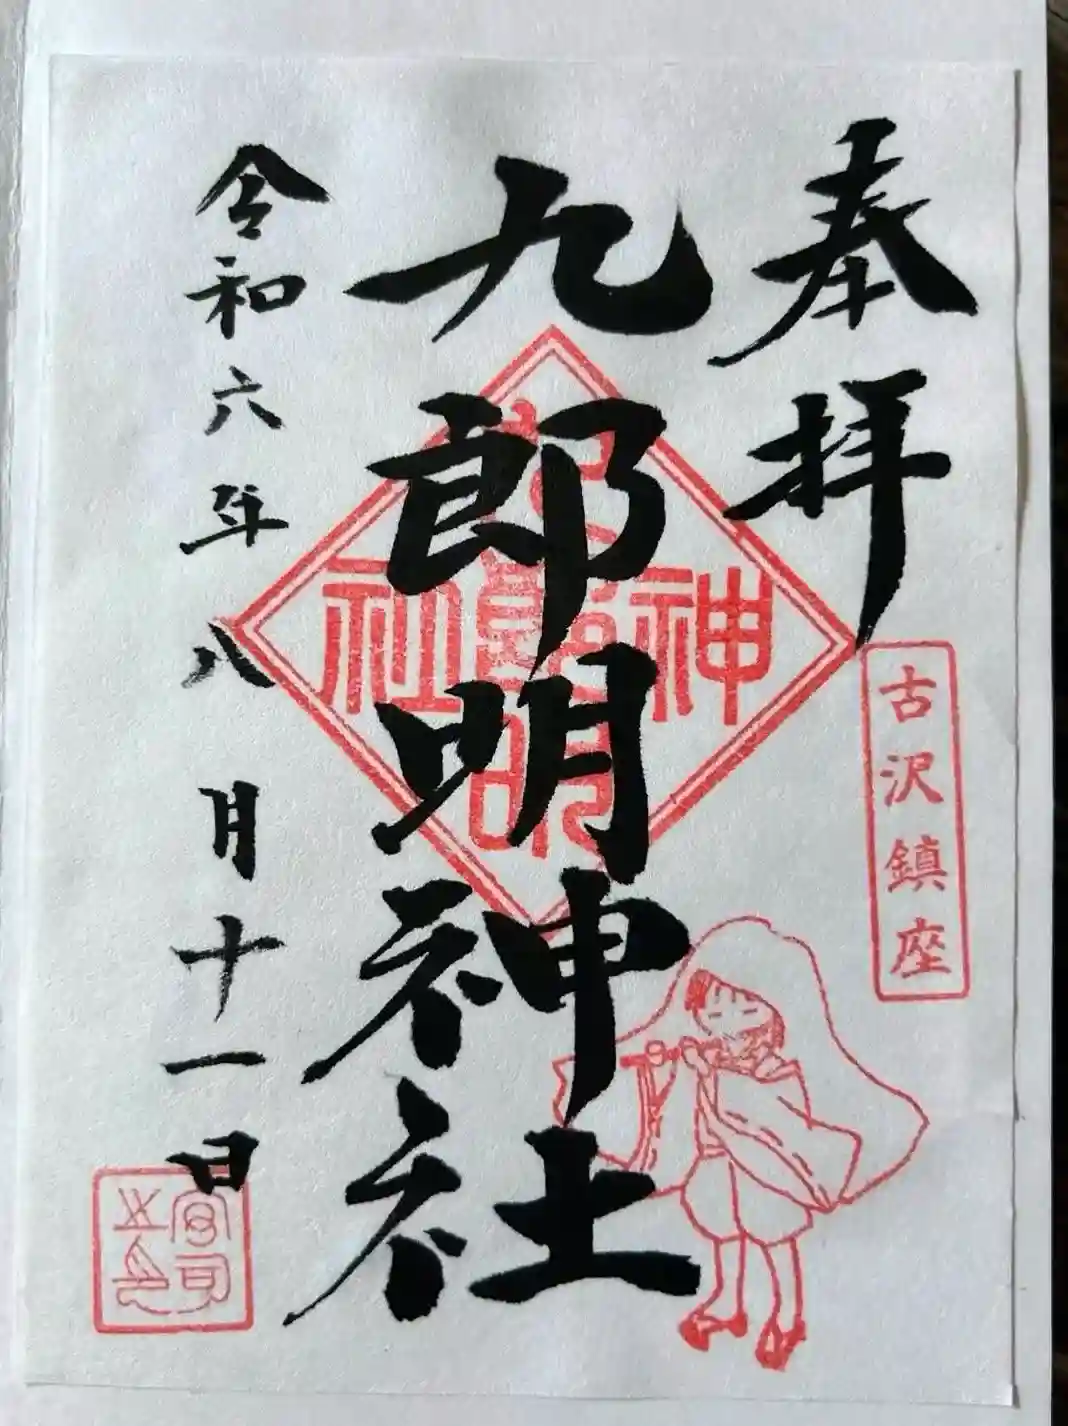 奉拝
古沢鎮座
九郎明神社
令和六年八月十一日
神社
宮司之印